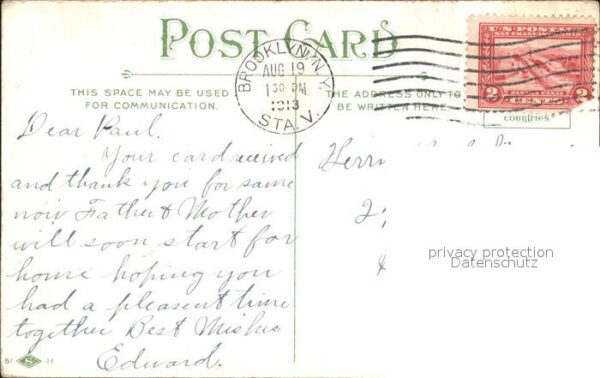 POST CARD
BROOKLYN, N.Y.
AUG 19
1 30 PM
1913
STA. V.
U.S. POSTAGE
SAN FRANCISCO
2 CENTS 2
THIS SPACE MAY BE USED
FOR COMMUNICATION.
THE ADDRESS ONLY TO
BE WRITTEN HERE
countries
Dear Paul.
Your card received
and thank you for same
now Father & Mother
will soon start for
home hoping you
had a pleasent time
together Best Wishes
Edward.
Herrn
2
privacy protection
Datenschutz
S